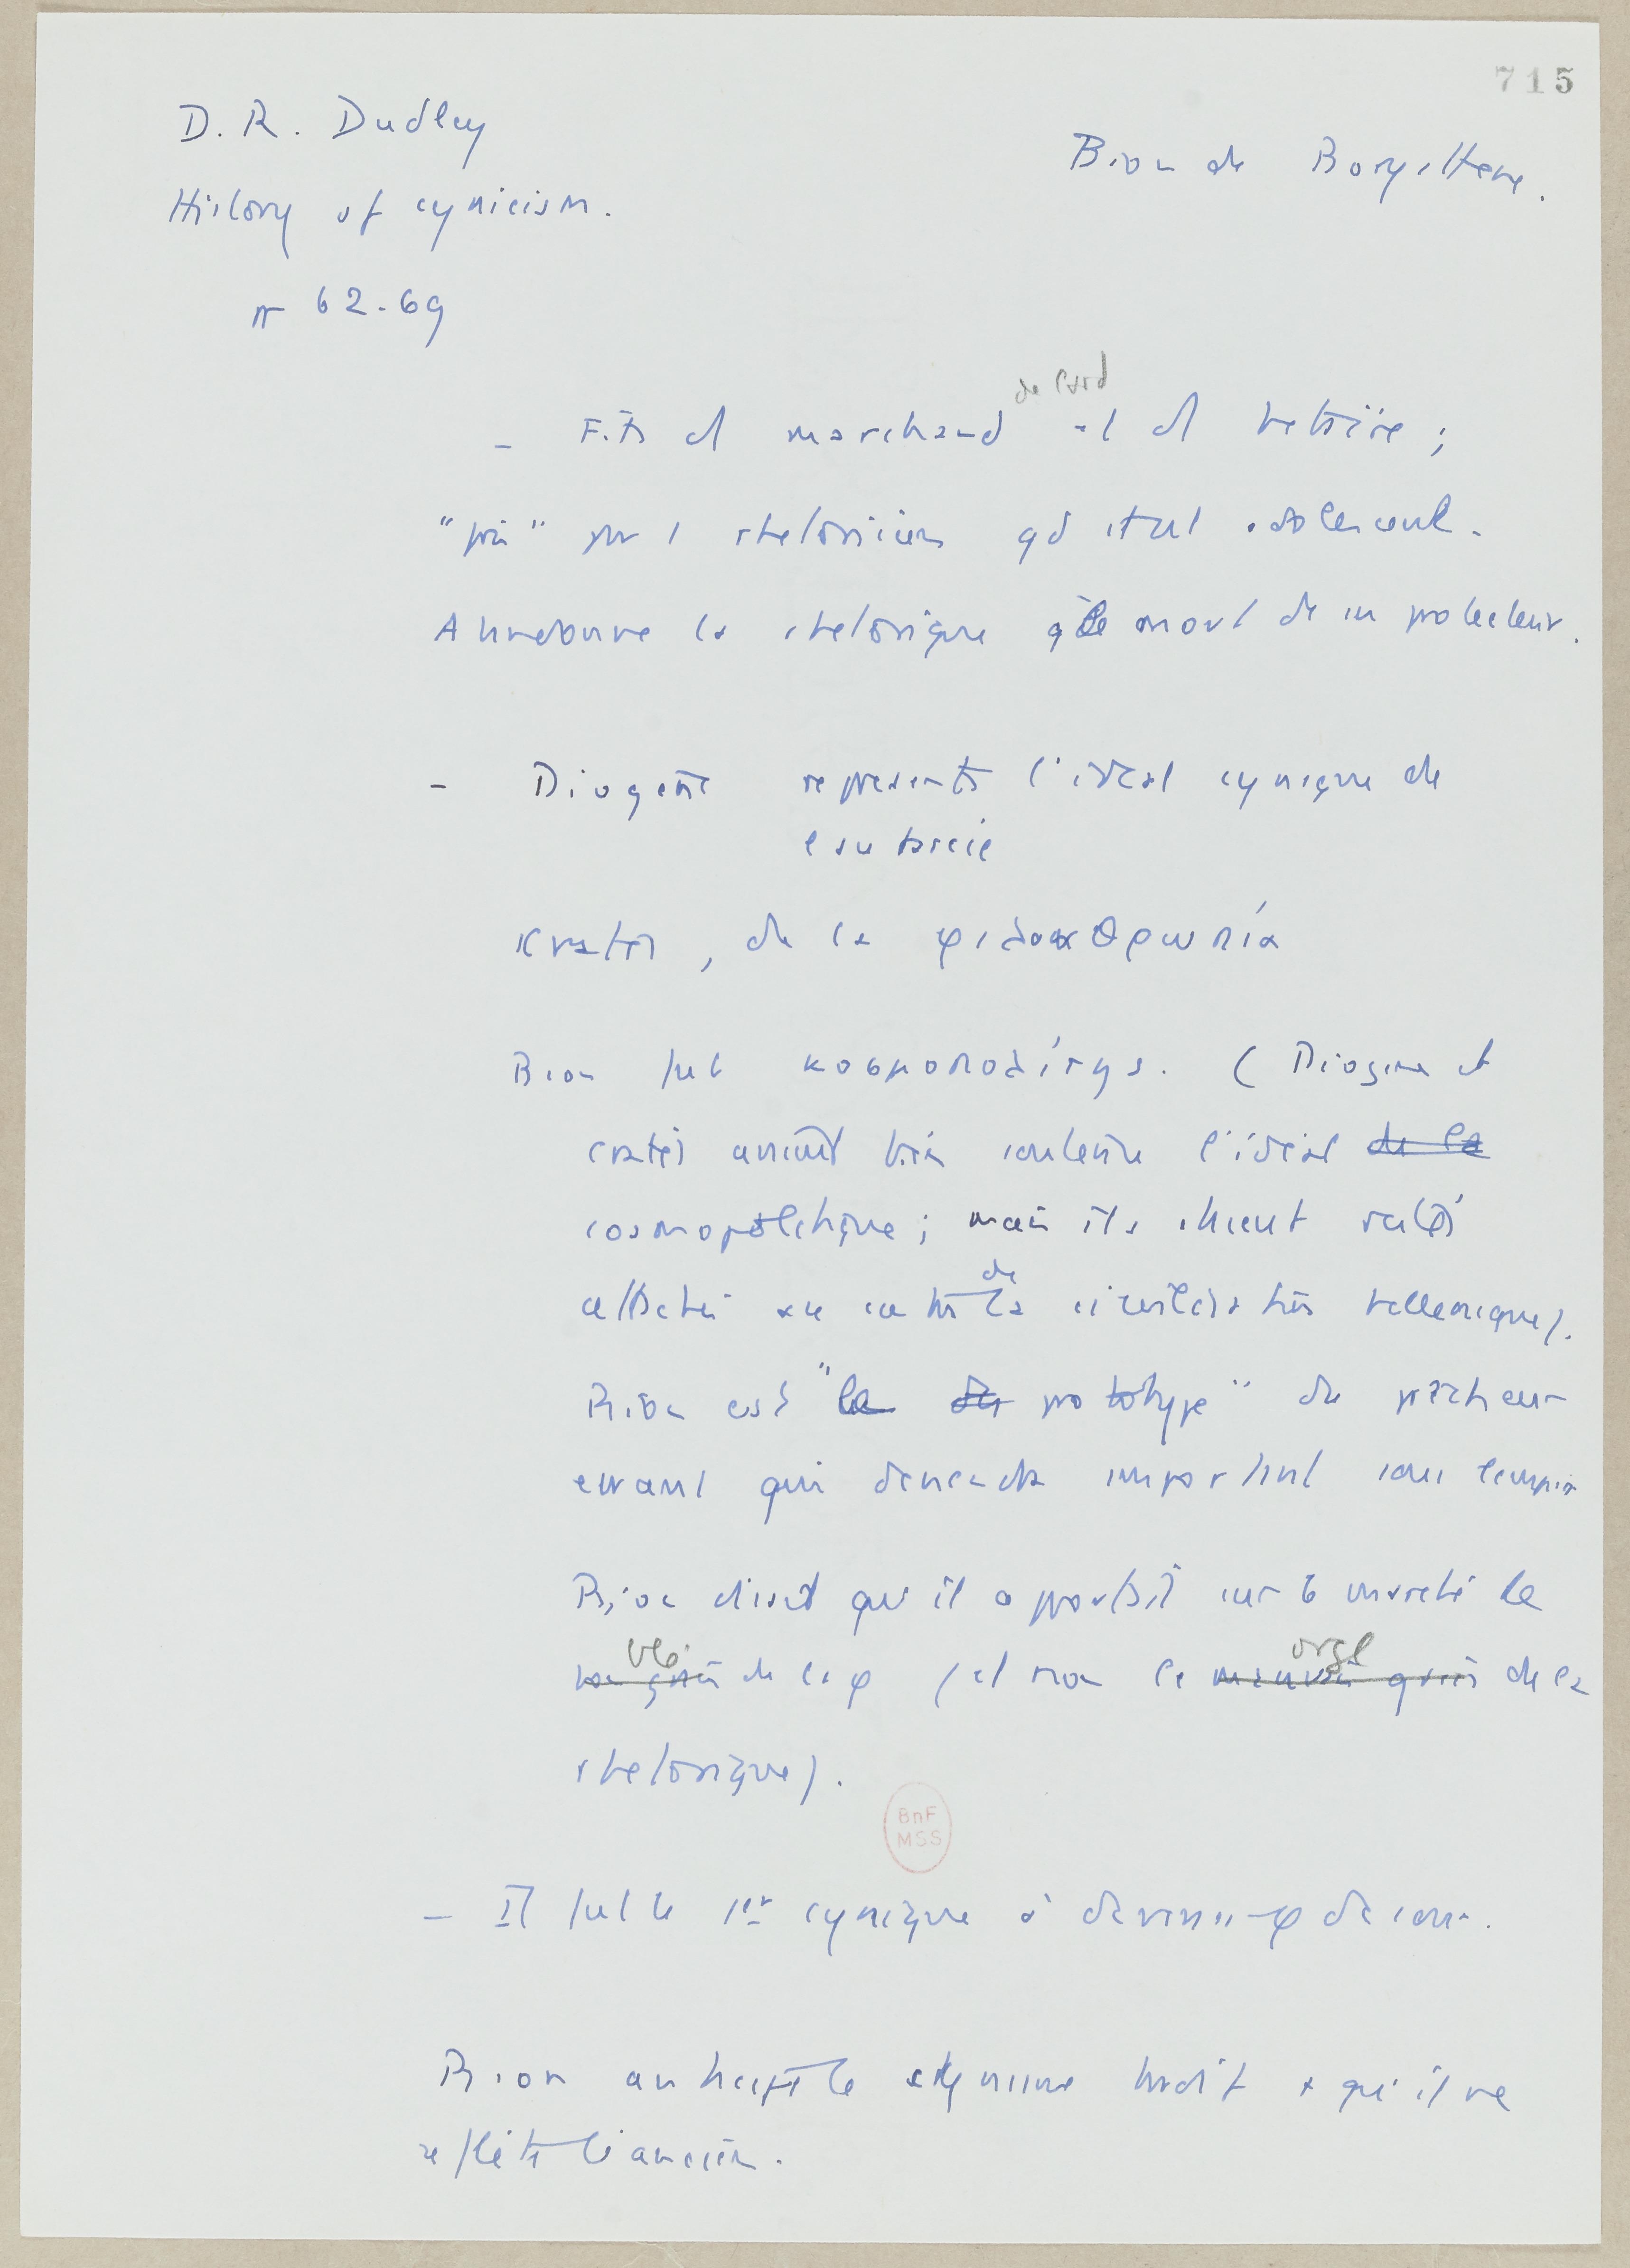 715
D. R. Dudley
Bion de Borysthene.
History of cynicism.
p 62-69
de lard
- Fils d marchand et d hétaïre ;
"pris" par 1 rhetoricien qd était adolescent.
Abandonne la rhetorique à la mort de son protecteur.
- Diogène représente l'idéal cynique de
l'autarcie
Kratès, de la φιλοανθρωπία
Bion fut κοσμοπολίτης. (Diogène et
Cratès avaient bien soutenu l'idéal de la
cosmopolitique ; mais ils étaient restés
attachés au centre de la civilisation hellenique).
Bion est "le de prototype" du prêcheur
errant qui deviendra important sous l'empire
Bion disait qu'il apportait sur le marché le
blé
orge
bon grain de la φ (et non le mauvais grain de la
rhetorique).
BnF
MSS
- Il fut le 1er cynique à devenir φ de cour.
Bion anticipe le cynisme tardif + qu'il ne
reflète l'ancien.